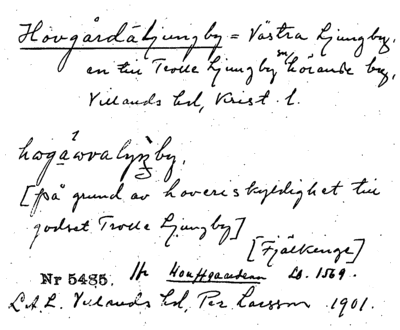 Hovgårdäljungby = Västra Ljungby,
en till Trolle Ljungby sn hörande by,
Villands hd, Krist. l.
hogåwvalynby,
[på grund av hoveriskyldighet till
godset Trolle Ljungby]
[Fjälkinge]
Nr 5485. Houffgaarden 1569.
L.A.L. Villands hd, Per Larsson 1901.